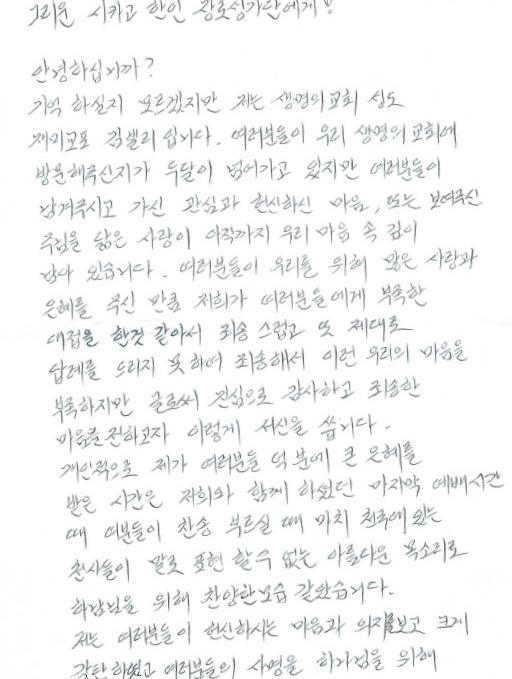 그리운 시카고 한인 장로성가단에게!
안녕하십니까?
기억 하실지 모르겠지만 저는 생명의교회 성도
재미교포 김밸리 입니다. 여러분들이 우리 생명의교회에
방문해주신지가 두달이 넘어가고 있지만 여러분들이
남겨주시고 가신 관심과 헌신하신 마음, 또는 보여주신
주님을 닮은 사랑이 아직까지 우리 마음 속 깊이
남아 있습니다. 여러분들이 우리를 위해 많은 사랑과
은혜를 주신 만큼 저희가 여러분들에게 부족한
대접을 한것 같아서 죄송 스럽고 또 제대로
답례를 드리지 못하여 죄송해서 이런 우리의 마음을
부족하지만 글로써 진심으로 감사하고 죄송한
마음을 전하고자 이렇게 서신을 씁니다.
개인적으로 제가 여러분들 덕분에 큰 은혜를
받은 시간은 저희와 함께 하셨던 마지막 예배시간
때 여분들이 찬송 부르실 때 마치 천국에 있는
천사들이 말로 표현 할수 없는 아름다운 목소리로
하나님을 위해 찬양한모습 같았습니다.
저는 여러분들이 헌신하시는 마음과 의지를보고 크게
감탄하였고 여러분들의 사명을 하나님을 위해